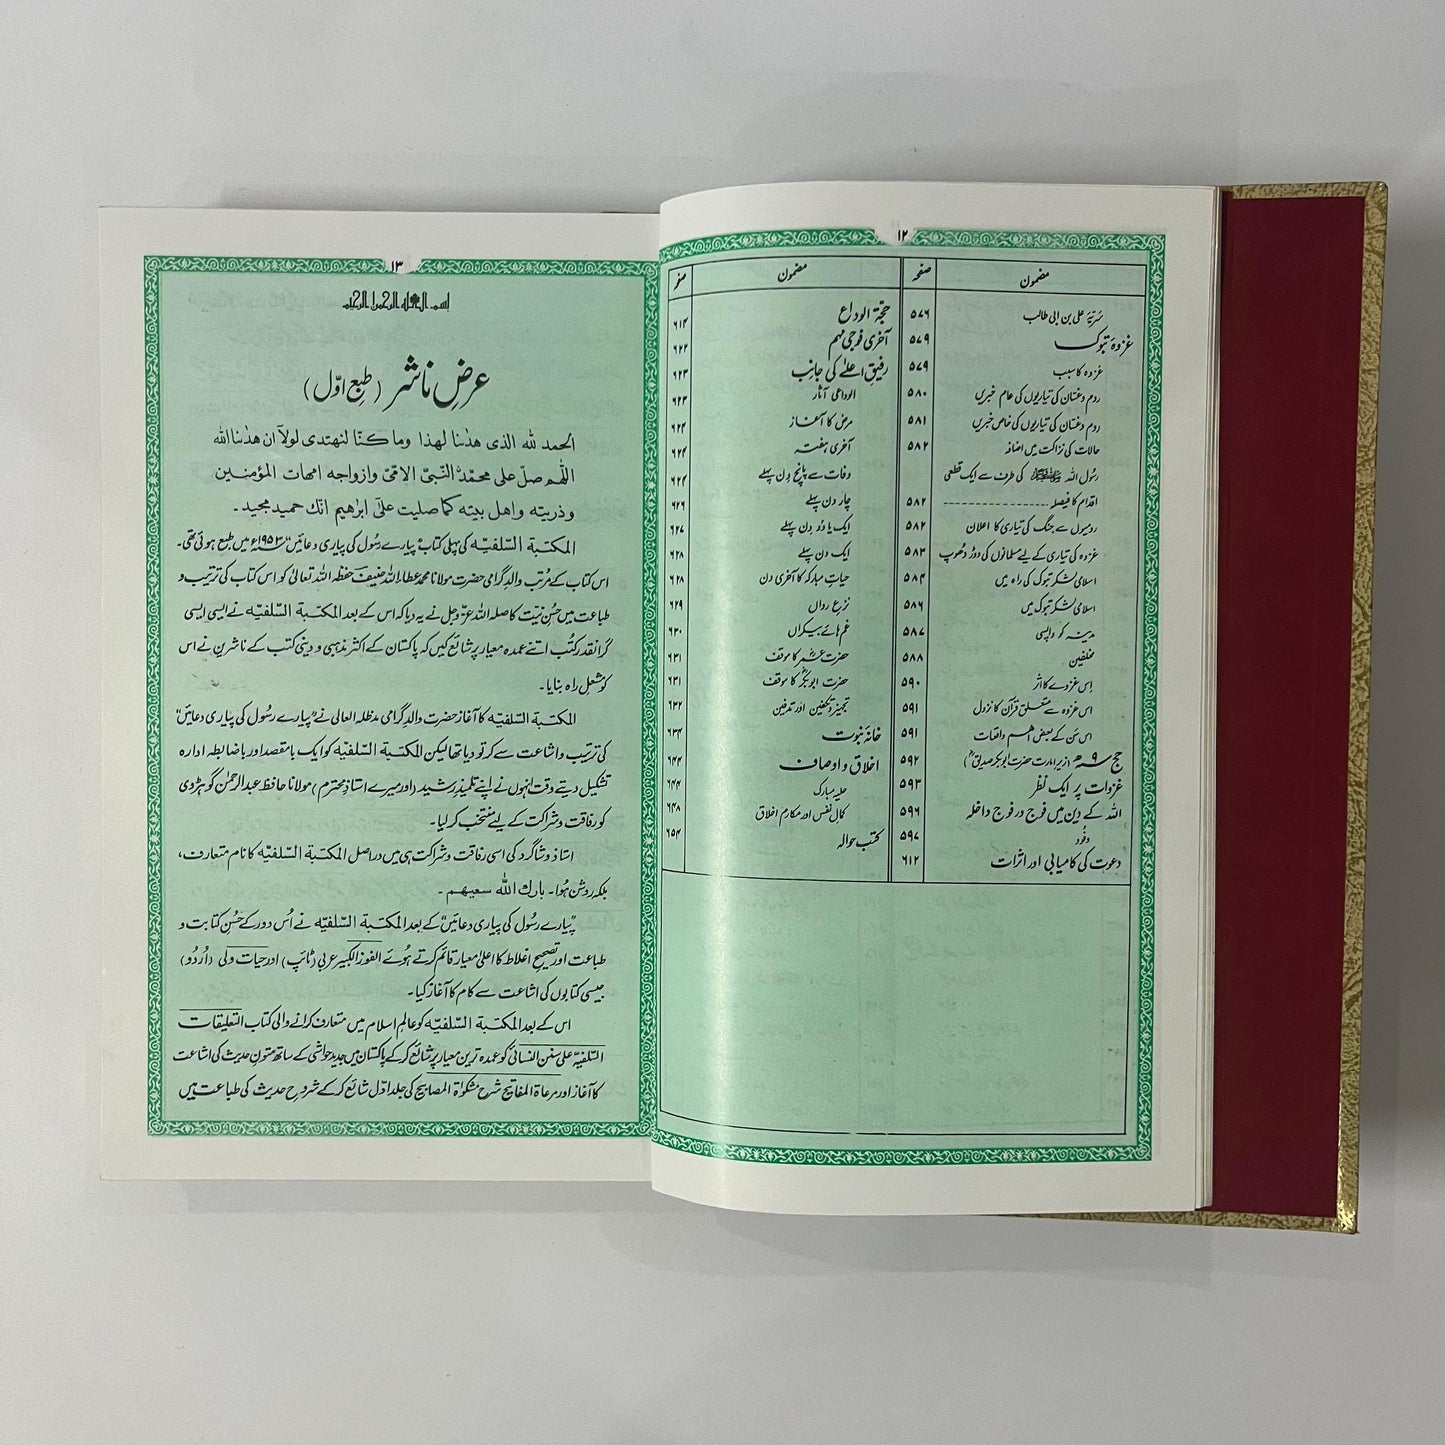 ۱۲
مضمون صفحہ
سریّہ علی بن ابی طالب ۵۷۶
غزوۂ تبوک ۵۷۹
غزوہ کا سبب ۵۷۹
روم و غسّان کی تیاریوں کی عام خبریں ۵۸۰
روم و غسّان کی تیاریوں کی خاص خبریں ۵۸۱
حالات کی نزاکت میں اضافہ ۵۸۲
رسُول اللہ ﷺ کی طرف سے ایک قطعی
اقدام کا فیصلہ ۵۸۲
رومیوں سے جنگ کی تیاری کا اعلان ۵۸۲
غزوہ کی تیاری کے لیے مسلمانوں کی دوڑ دھوپ ۵۸۳
اسلامی لشکر تبوک کی راہ میں ۵۸۴
اسلامی لشکر تبوک میں ۵۸۶
مدینہ کو واپسی ۵۸۷
مخلفین ۵۸۸
اِس غزوے کا اثر ۵۹۰
اس غزوہ سے متعلق قرآن کا نزول ۵۹۱
اس سَن کے بعض اہم واقعات ۵۹۱
حج ۹ھ (زیرِ امارت حضرت ابوبکر صدیقؓ) ۵۹۲
غزوات پر ایک نظر ۵۹۳
اللہ کے دین میں فوج در فوج داخلہ ۵۹۶
وفُود ۵۹۷
دعوت کی کامیابی اور اثرات ۶۱۲
مضمون صفحہ
حجّۃ الوداع ۶۱۴
آخری فوجی مہم ۶۲۲
رفیقِ اعلےٰ کی جانِب ۶۲۳
الوداعی آثار ۶۲۳
مرض کا آغاز ۶۲۴
آخری ہفتہ ۶۲۴
وفات سے پانچ دِن پہلے ۶۲۴
چار دن پہلے ۶۲۶
ایک یا دو دن پہلے ۶۲۷
ایک دن پہلے ۶۲۸
حیاتِ مبارکہ کا آخری دن ۶۲۸
نزعِ رواں ۶۲۹
غم ہائے بیکراں ۶۳۰
حضرت عمرؓ کا موقف ۶۳۱
حضرت ابوبکرؓ کا موقف ۶۳۱
تجہیز و تکفین اور تدفین ۶۳۲
خانۂ نبوت ۶۳۴
اخلاق و اوصاف ۶۴۴
حلیہ مبارک ۶۴۴
کمالِ نفس اور مکارمِ اخلاق ۶۴۸
کتب حوالہ ۶۵۴
۱۳
بسم اللہ الرحمن الرحیم
عرضِ ناشر (طبع اوّل)
الحمد للہ الذی ھدٰنا لھذا وما کنّا لنھتدی لولآ ان ھدٰنا اللہ
اللّٰھم صلّ علی محمّد النّبیّ الامّیّ وازواجہ امھات المؤمنین
وذریتہ واھل بیتہ کما صلیت علیٰ ابراھیم انّک حمید مجید۔
المکتبۃ السّلفیّہ کی پہلی کتاب "پیارے رسول کی پیاری دعائیں" ۱۹۵۳ء میں طبع ہوئی تھی۔
اس کتاب کے مرتب والدِ گرامی حضرت مولانا محمد عطاء اللہ حنیف حفظہ اللہ تعالیٰ کو اس کتاب کی ترتیب و
طباعت میں حُسنِ نیّت کا صلہ اللہ عزّ وجل نے یہ دیا کہ اس کے بعد المکتبۃ السّلفیّہ نے ایسی ایسی
گرانقدر کتُب اتنے عمدہ معیار پر شائع کیں کہ پاکستان کے اکثر مذہبی و دینی کتب کے ناشرین نے اس
کو مشعلِ راہ بنایا۔
المکتبۃ السّلفیّہ کا آغاز حضرت والدِ گرامی مدظلہ العالی نے "پیارے رسُول کی پیاری دعائیں"
کی ترتیب و اشاعت سے کر تو دیا تھا لیکن المکتبۃ السّلفیّہ کو ایک با مقصد اور باضابطہ ادارہ
تشکیل دیتے وقت انہوں نے اپنے تلمیذِ رشید (اور میرے استاذِ محترم) مولانا حافظ عبدالرحمٰن گوہڑوی
کو رفاقت و شراکت کے لیے منتخب کر لیا۔
استاذ و شاگرد کی اسی رفاقت و شراکت ہی میں دراصل المکتبۃ السّلفیّہ کا نام متعارف،
بلکہ روشن ہُوا۔ بارک اللّٰہ سعیھم۔
"پیارے رسُول کی پیاری دعائیں" کے بعد المکتبۃ السّلفیّہ نے اُس دور کے حُسنِ کتابت و
طباعت اور تصحیحِ اغلاط کا اعلیٰ معیار قائم کرتے ہُوئے الفوز الکبیر عربی (ٹائپ) اور حیات ولی (اُردُو)
جیسی کتابوں کی اشاعت سے کام کا آغاز کیا۔
اس کے بعد المکتبۃ السّلفیّہ کو عالمِ اسلام میں متعارف کرانے والی کتاب التعلیقات
السّلفیّہ علیٰ سنن النسائی کو عمدہ ترین معیار پر شائع کر کے پاکستان میں جدید حواشی کے ساتھ متونِ حدیث کی اشاعت
کا آغاز اور مرعاۃ المفاتیح شرح مشکوٰۃ المصابیح کی جلد اوّل شائع کر کے شروحِ حدیث کی طباعت میں